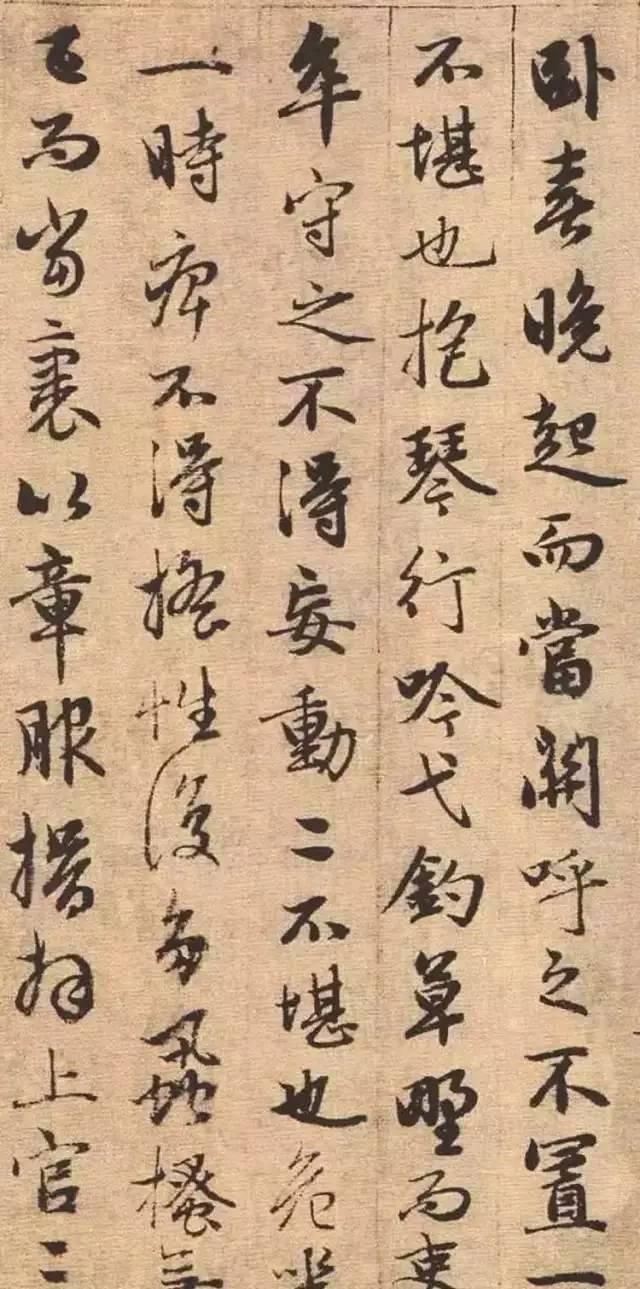 卧喜晚起而當關呼之不置一
不堪也抱琴行吟弋釣草野而吏
卒守之不得妄動二不堪也危坐
一時痺不得搖性復多虱搔
已而當裹以章服揖拜上官